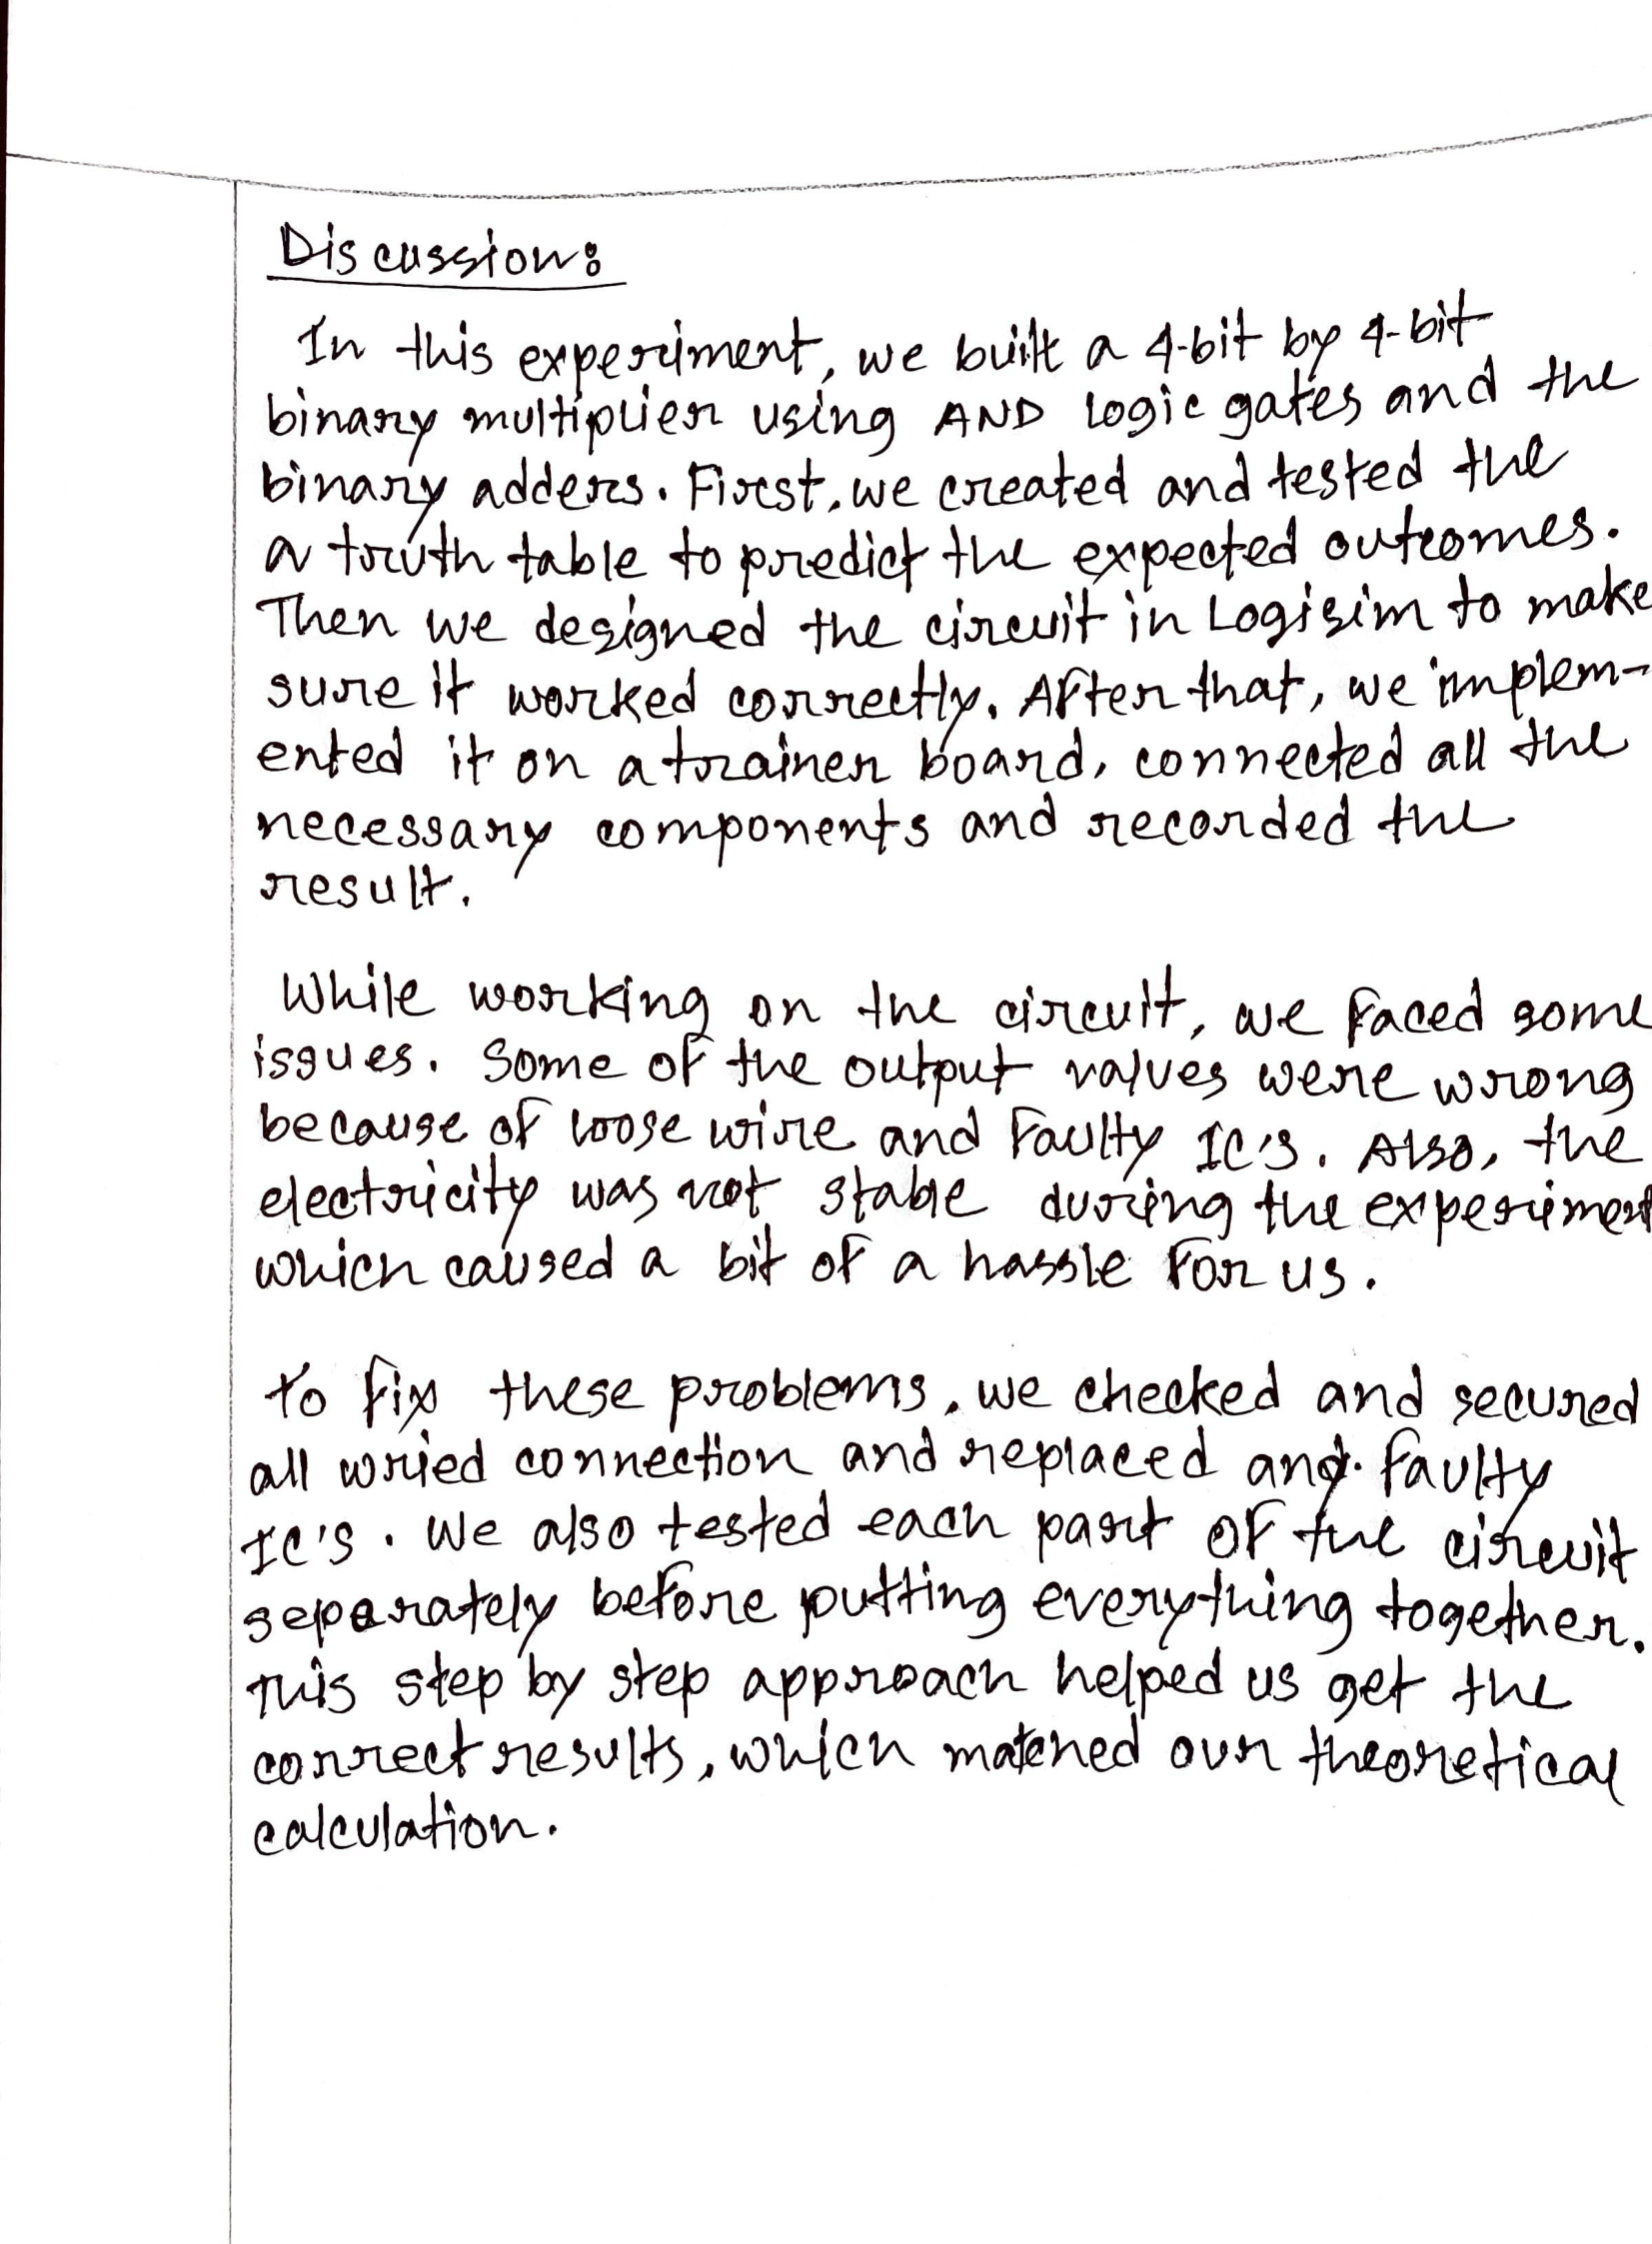 Discussion:
In this experiment, we built a 4-bit by 4-bit
binary multiplier using AND logic gates and the
binary adders. First, we created and tested the
a truth table to predict the expected outcomes.
Then we designed the circuit in Logisim to make
sure it worked correctly. After that, we implem-
ented it on a trainer board, connected all the
necessary components and recorded the
result.
While working on the circuit, we faced some
issues. Some of the output values were wrong
because of loose wire and faulty IC's. Also, the
electricity was not stable during the experiment
which caused a bit of a hassle for us.
To fix these problems, we checked and secured
all wried connection and replaced any faulty
IC's. We also tested each part of the circuit
separately before putting everything together.
This step by step approach helped us get the
correct results, which matched our theoretical
calculation.